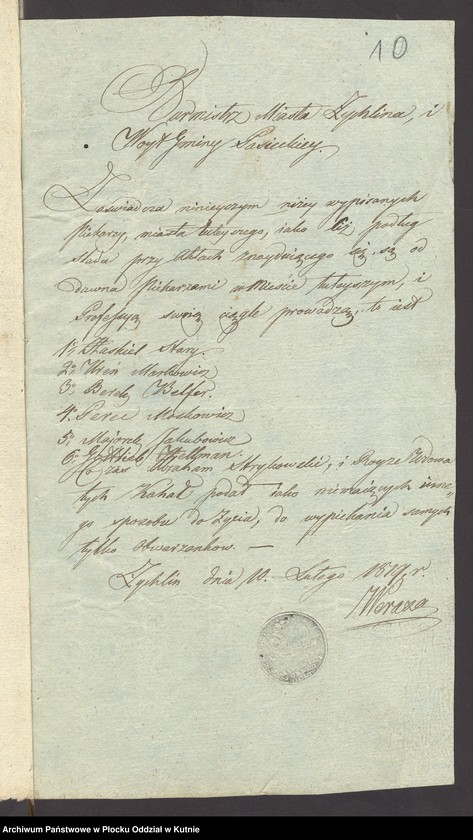 10
Burmistrz Miasta Zychlina, i
Woyt Gminy Pasieckiey.
Zaświadcza ninieyszym niżey wypisanych
Piekarzy, miasta tuteyszego, iako ciż podług
ślada przy Aktach znayduiącego się, są od
dawna Piekarzami w Mieście tuteyszym, i
Professyą swoią ciągle prowadzą, to iest
1o, Haskiel Stary.
2o Uren Markowicz
3o, Berek Belfer.
4o Perec Moskowicz
5o, Majorek Jakubowicz
6o, Gottlieb Hellman.
Co zaś Abraham Strykowski, i Royze Wdowa
tych Kahał podał iako niemaiących inne-
go sposobu do życia, do wypiekania samych
tylko obwarzanków. —
Zychlin dnia 10. Lutego 1819. r.
Archiwum Państwowe w Płocku Oddział w Kutnie